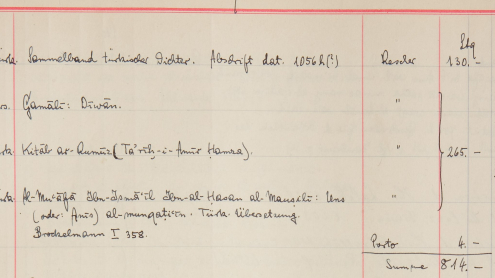 Ltq
türk. Sammelband türkischer Dichter. Abschrift dat. 1056 h(?) Rescher 130.-
rs. Ǧamālī: Dīwān. "
türk. Kitāb ar-Rumūz (Ta'rīḫ-i-Amīr Ḥamza). " 265.-
türk. Al-Mu'āfā Ibn-Ismā'īl Ibn-al-Ḥasan al-Mauṣilī: Uns "
(oder: Anīs) al-munqaṭi'īn. Türk. Übersetzung
Brockelmann I 358.
Porto 4.-
Summe 814.-